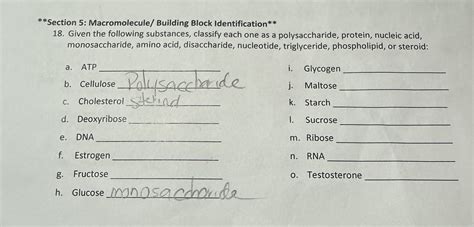 **Section 5: Macromolecule/ Building Block Identification**
18. Given the following substances, classify each one as a polysaccharide, protein, nucleic acid,
monosaccharide, amino acid, disaccharide, nucleotide, triglyceride, phospholipid, or steroid:
a. ATP
b. Cellulose Polysaccharide
c. Cholesterol
d. Deoxyribose
e. DNA
f. Estrogen
g. Fructose
h. Glucose monosaccharide
i. Glycogen
j. Maltose
k. Starch
l. Sucrose
m. Ribose
n. RNA
o. Testosterone